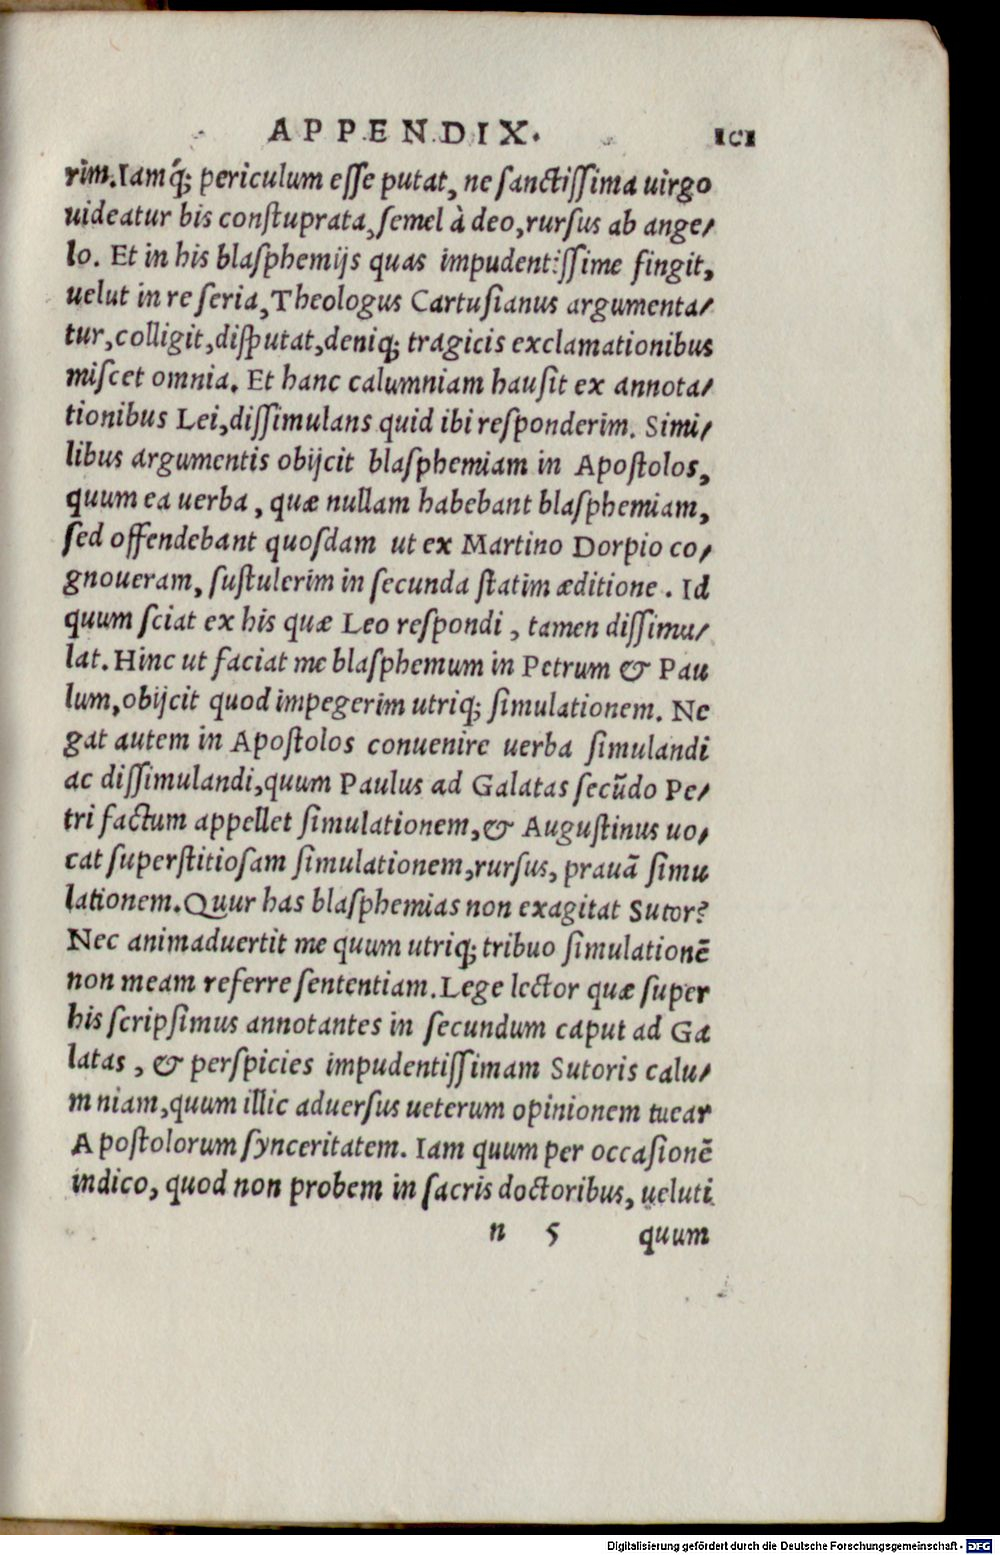 APPENDIX. 1c1
rim. Iamq́; periculum eſſe putat, ne ſanctiſſima uirgo
uideatur bis conſtuprata, ſemel à deo, rurſus ab ange/
lo. Et in his blaſphemijs quas impudentiſſime fingit,
uelut in re ſeria, Theologus Cartuſianus argumenta/
tur, colligit, diſputat, deniq; tragicis exclamationibus
miſcet omnia. Et hanc calumniam hauſit ex annota/
tionibus Lei, diſſimulans quid ibi reſponderim. Simi/
libus argumentis obijcit blaſphemiam in Apoſtolos,
quum ea uerba, quæ nullam habebant blaſphemiam,
ſed offendebant quoſdam ut ex Martino Dorpio co/
gnoueram, ſuſtulerim in ſecunda ſtatim æditione. Id
quum ſciat ex his quæ Leo reſpondi, tamen diſſimu/
lat. Hinc ut faciat me blaſphemum in Petrum & Pau
lum, obijcit quod impegerim utriq; ſimulationem. Ne
gat autem in Apoſtolos conuenire uerba ſimulandi
ac diſſimulandi, quum Paulus ad Galatas ſecũdo Pe/
tri factum appellet ſimulationem, & Auguſtinus uo/
cat ſuperſtitioſam ſimulationem, rurſus, prauã ſimu
lationem. Quur has blaſphemias non exagitat Sutor?
Nec animaduertit me quum utriq; tribuo ſimulationẽ
non meam referre ſententiam. Lege lector quæ ſuper
his ſcripſimus annotantes in ſecundum caput ad Ga
latas, & perſpicies impudentiſſimam Sutoris calu/
mniam, quum illic aduerſus ueterum opinionem tuear
Apoſtolorum ſynceritatem. Iam quum per occaſionẽ
indico, quod non probem in ſacris doctoribus, ueluti
n 5 quum
Digitalisierung gefördert durch die Deutsche Forschungsgemeinschaft - DFG